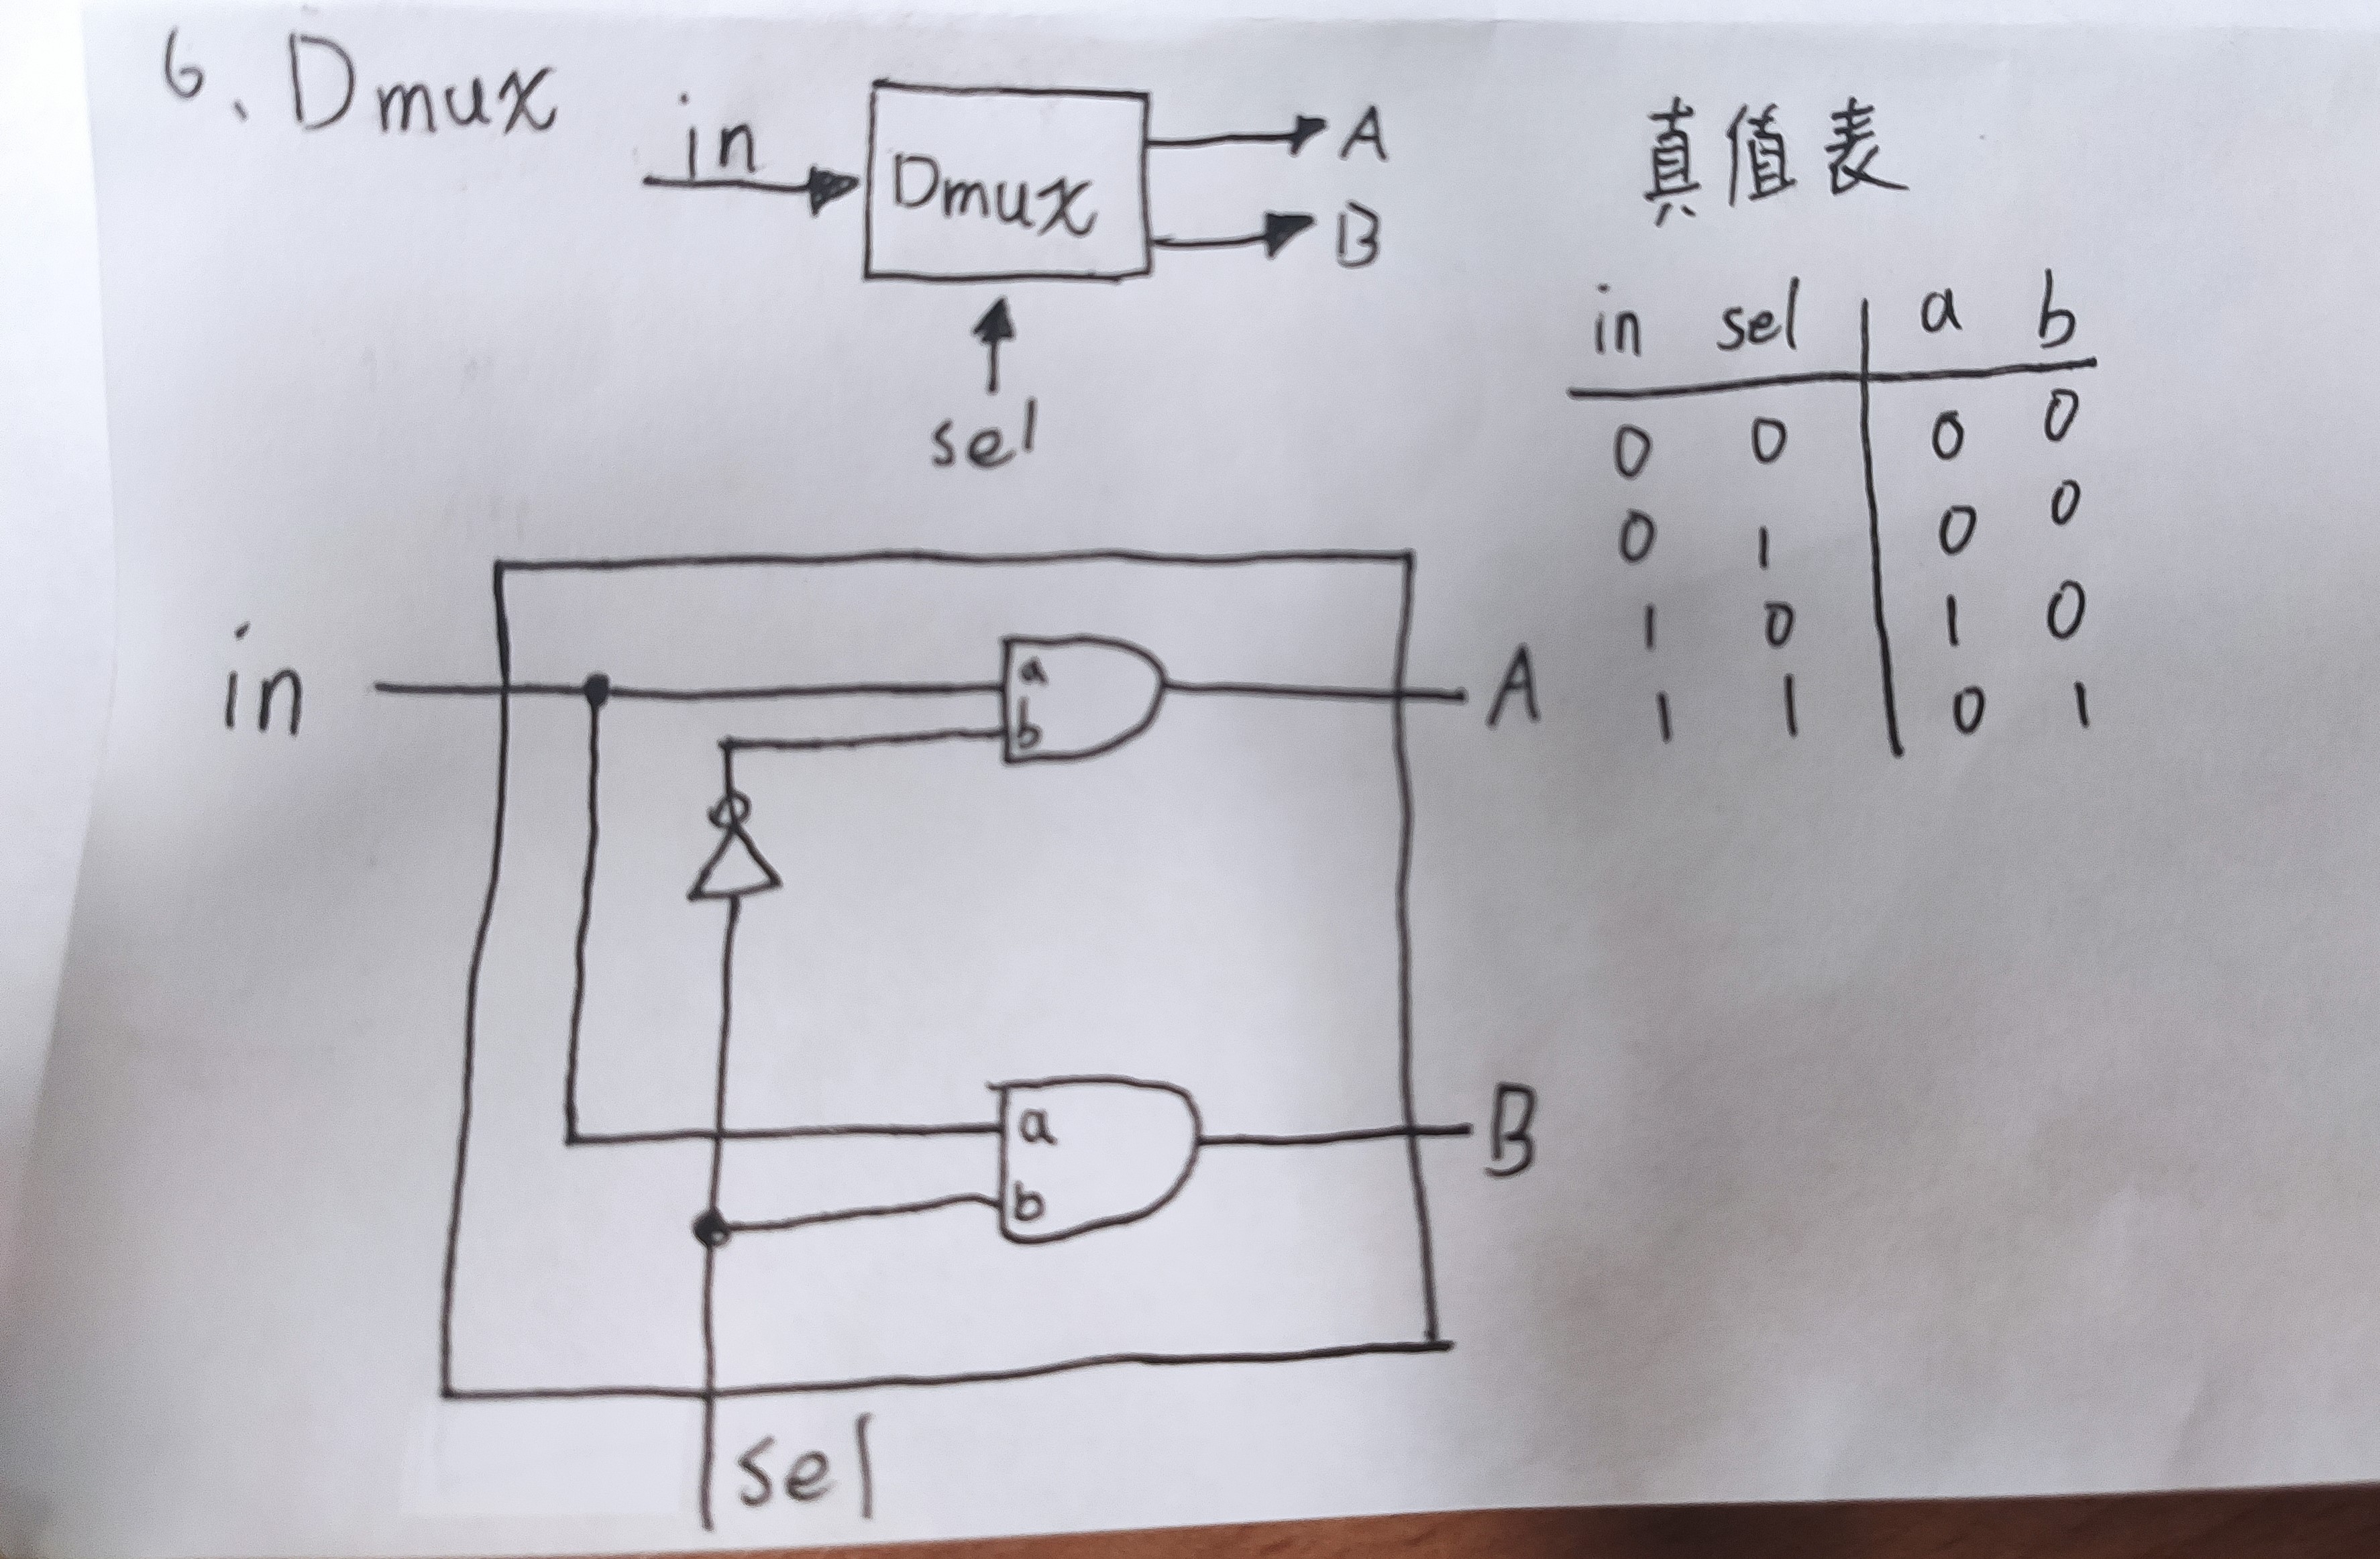 6、Dmux
in
Dmux
A
B
sel
真值表
in sel a b
0 0 0 0
0 1 0 0
1 0 1 0
1 1 0 1
in
a
b
A
a
b
B
sel